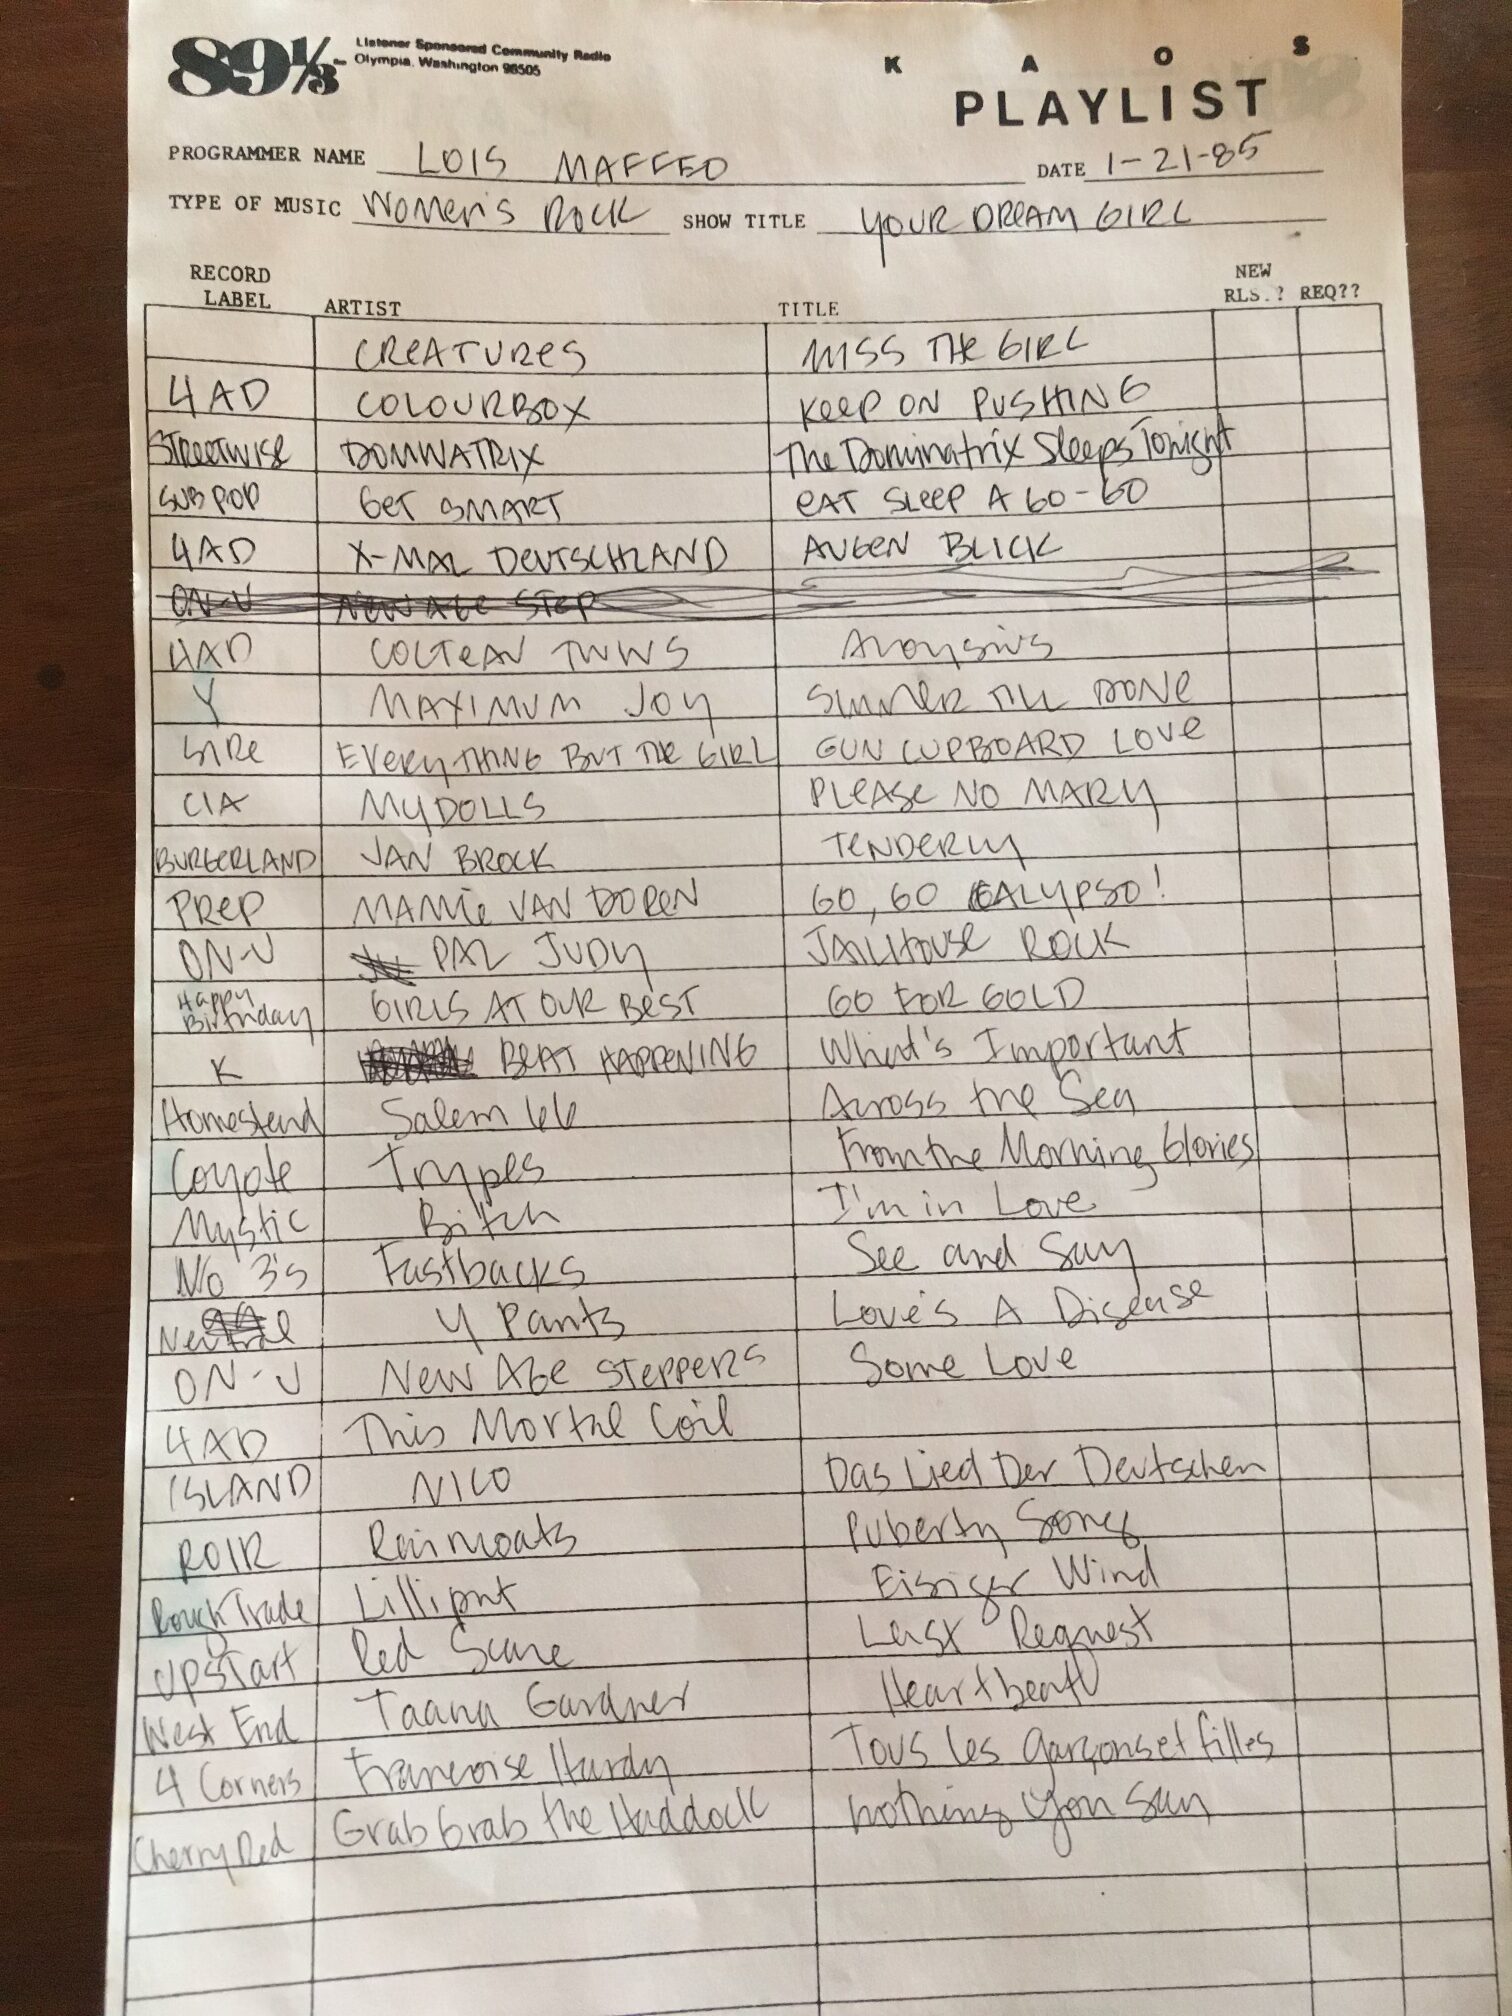 89⅓ Listener Sponsored Community Radio
Olympia, Washington 98505
K A O S
PLAYLIST
PROGRAMMER NAME LOIS MAFFEO DATE 1-21-85
TYPE OF MUSIC Women's ROCK SHOW TITLE YOUR DREAM GIRL
RECORD LABEL ARTIST TITLE NEW RLS.? REQ??
CREATURES MISS THE GIRL
4AD COLOURBOX KEEP ON PUSHING
STREETWISE DOMINATRIX The Dominatrix Sleeps Tonight
SUB POP GET SMART EAT SLEEP A GO-GO
4AD X-MAL DEUTSCHLAND AUGEN BLICK
ON-U NEW AGE STEP
4AD COCTEAU TWINS Aloysius
Y MAXIMUM JOY SIMMER TILL DONE
SIRE EVERYTHING BUT THE GIRL GUN CUPBOARD LOVE
CIA MYDOLLS PLEASE NO MARY
BURGERLAND JAN BROCK TENDERLY
PREP MAMIE VAN DOREN GO, GO CALYPSO!
ON-U PAL JUDY JAILHOUSE ROCK
Happy Birthday GIRLS AT OUR BEST GO FOR GOLD
K BEAT HAPPENING What's Important
Homestead Salem 66 Across the Sea
Coyote Trypes From the Morning Glories
Mystic Bitch I'm in Love
No 3's Fastbacks See and Say
Neutral Y Pants Love's A Disease
ON-U NEW AGE STEPPERS Some Love
4AD This Mortal Coil
ISLAND NICO Das Lied Der Deutschen
ROIR Raincoats Puberty Song
Rough Trade Lilliput Eisiger Wind
UpStart Red Scare Last Request
West End Taana Gardner Heartbeat
4 Corners Francoise Hardy Tous les garçons et filles
Cherry Red Grab Grab the Haddock nothing you say